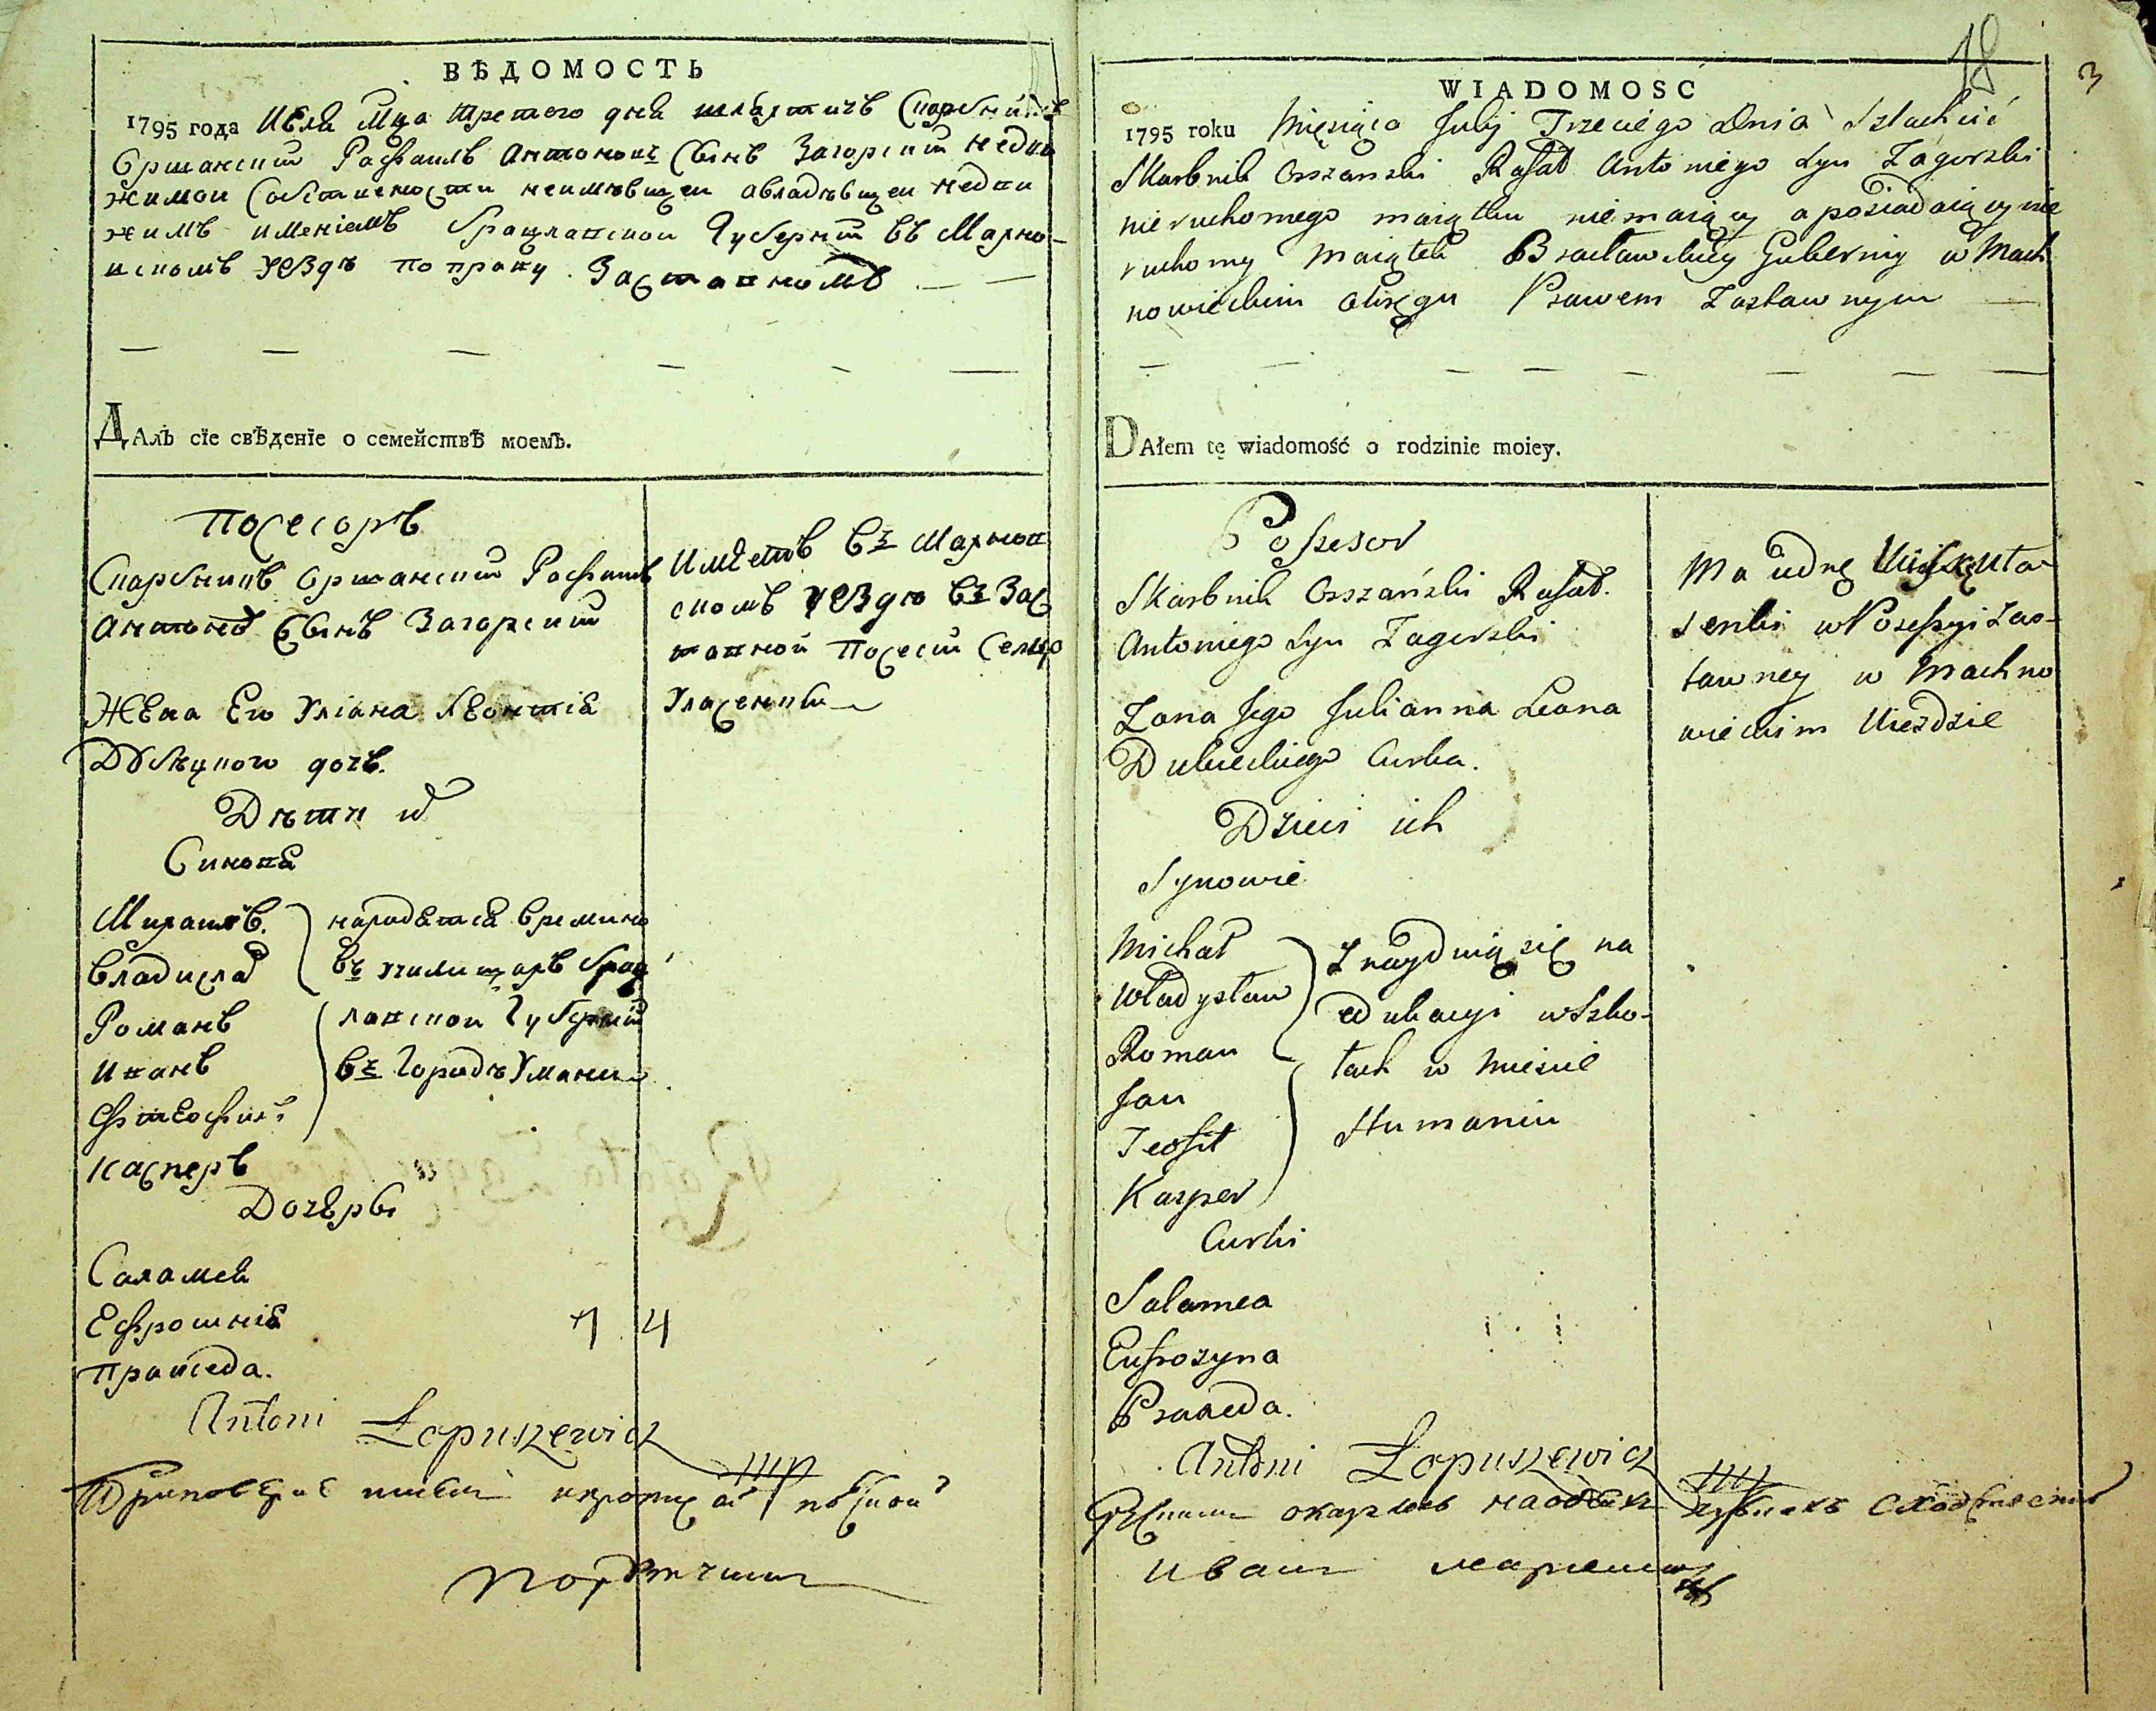 ВѢДОМОСТЬ
1795 года Июля Мца третего дня шляхтичъ Скарбникъ
Оршанский Рафаилъ Антоновъ Сынъ Загорский недви
жимои Собствености неимѣвщеи авладѣвщеи недви
жимъ имениемъ Брацлавскои Губернии въ Махно-
вскомъ уездѣ по праву Заставномъ
Далъ сїе свѣденїе о семействѣ моемъ.
Посесоръ
Скарбникъ Оршанский Рафаилъ
Антоновъ Сынъ Загорский
Жена Его Улiана Леонтiя
Дубецкого дочь.
Дѣти их
Синовя
Михаилъ.
Владислав
Романъ
Иванъ
Фтеофилъ
Касперъ
находятся времино
въ училищахъ Брац
лавскои Губернии
въ Городѣ Умани
Дочеры
Саламея
Ефрошнiя
Пракседа.
Имѣетъ въ Махнов
скомъ уездѣ въ Зас
тавной Посесии Село
1 4
Antoni Łopuszewicz
WIADOMOSC
18
3
1795 roku Mięsiąca Julij Trzeciego Dnia Szlachcic
Skarbnik Orszanski Rafał Antoniego Syn Zagorski
nieruchomego maiątku niemaiący aposiadaiący nie
ruchomy maiątek Bracławskiey Guberniy w Mach
nowieckim okręgu Prawem Zastawnym
DAłem tę wiadomość o rodzinie moiey.
Possesor
Skarbnik Orszański Rafał.
Antoniego Syn Zagorski
Zona Jego Julianna Leona
Dubieckiego Curka.
Dzieci ich
Synowie
Michał
Władysław
Roman
Jan
Teofil
Kasper
Znayduią się na
Edukacyi w Szko-
łach w Miescie
Humaniu
Curki
Salamea
Eufrozyna
Praxeda.
Ma
w Possessyi Zas-
tawney w Machno
wieckim Uiezdzie
Antoni Łopuszewicz
Иван